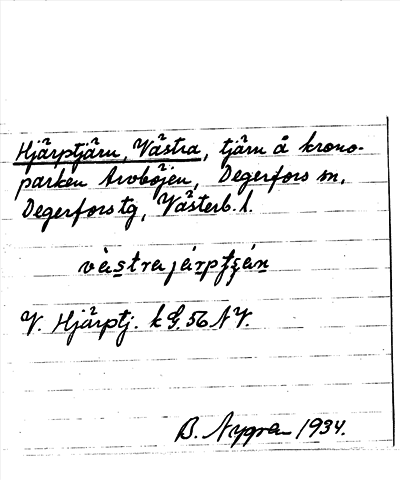 Hjärptjärn, Västra, tjärn å krono-
parken Arvböjen, Degerfors sn,
Degerfors tg, Västerb. l.
västra järptjän
V. Hjärptj. k G. 56 NV.
B. Nygren 1934.